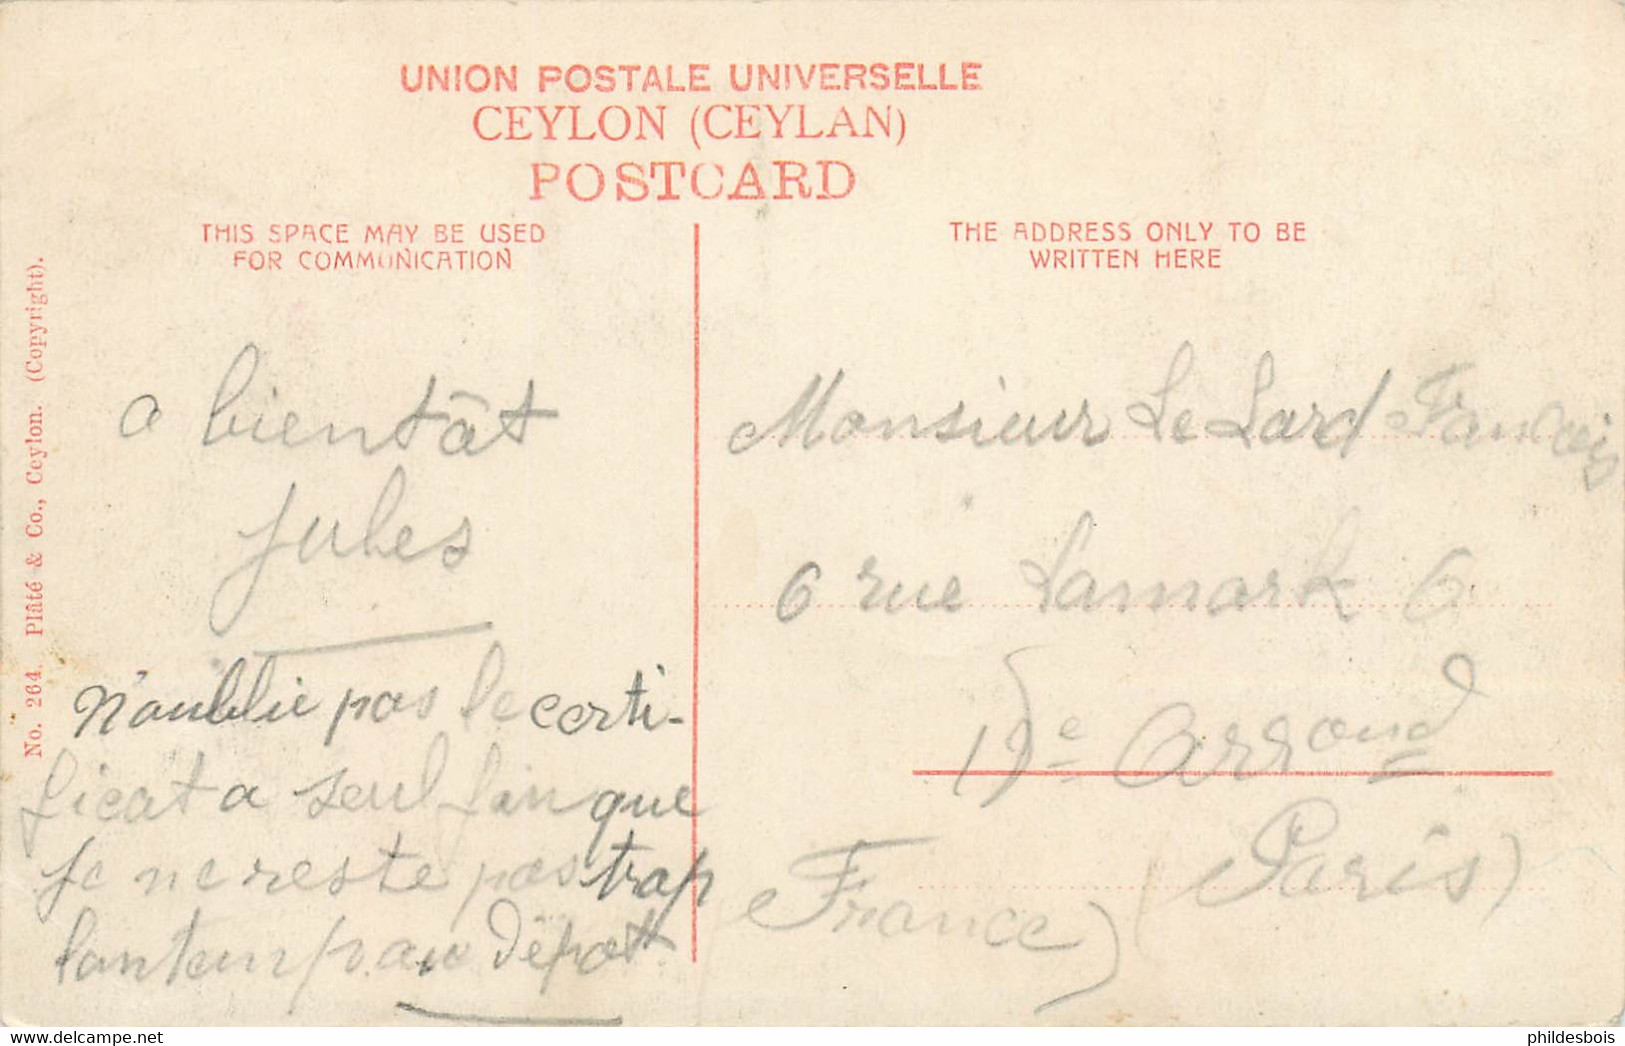 UNION POSTALE UNIVERSELLE
CEYLON (CEYLAN)
POSTCARD
THIS SPACE MAY BE USED
FOR COMMUNICATION
THE ADDRESS ONLY TO BE
WRITTEN HERE
No. 264. Plâté & Co., Ceylon. (Copyright).
a bientât
Jules
N'oublie pas le certi-
ficat a seul fin que
je ne reste pas trop
lontemp au Dépot
Monsieur Le Lard Francois
6 rue Lamark 6
e Arrond
(Paris)
France)
delcampe.net
phildesbois